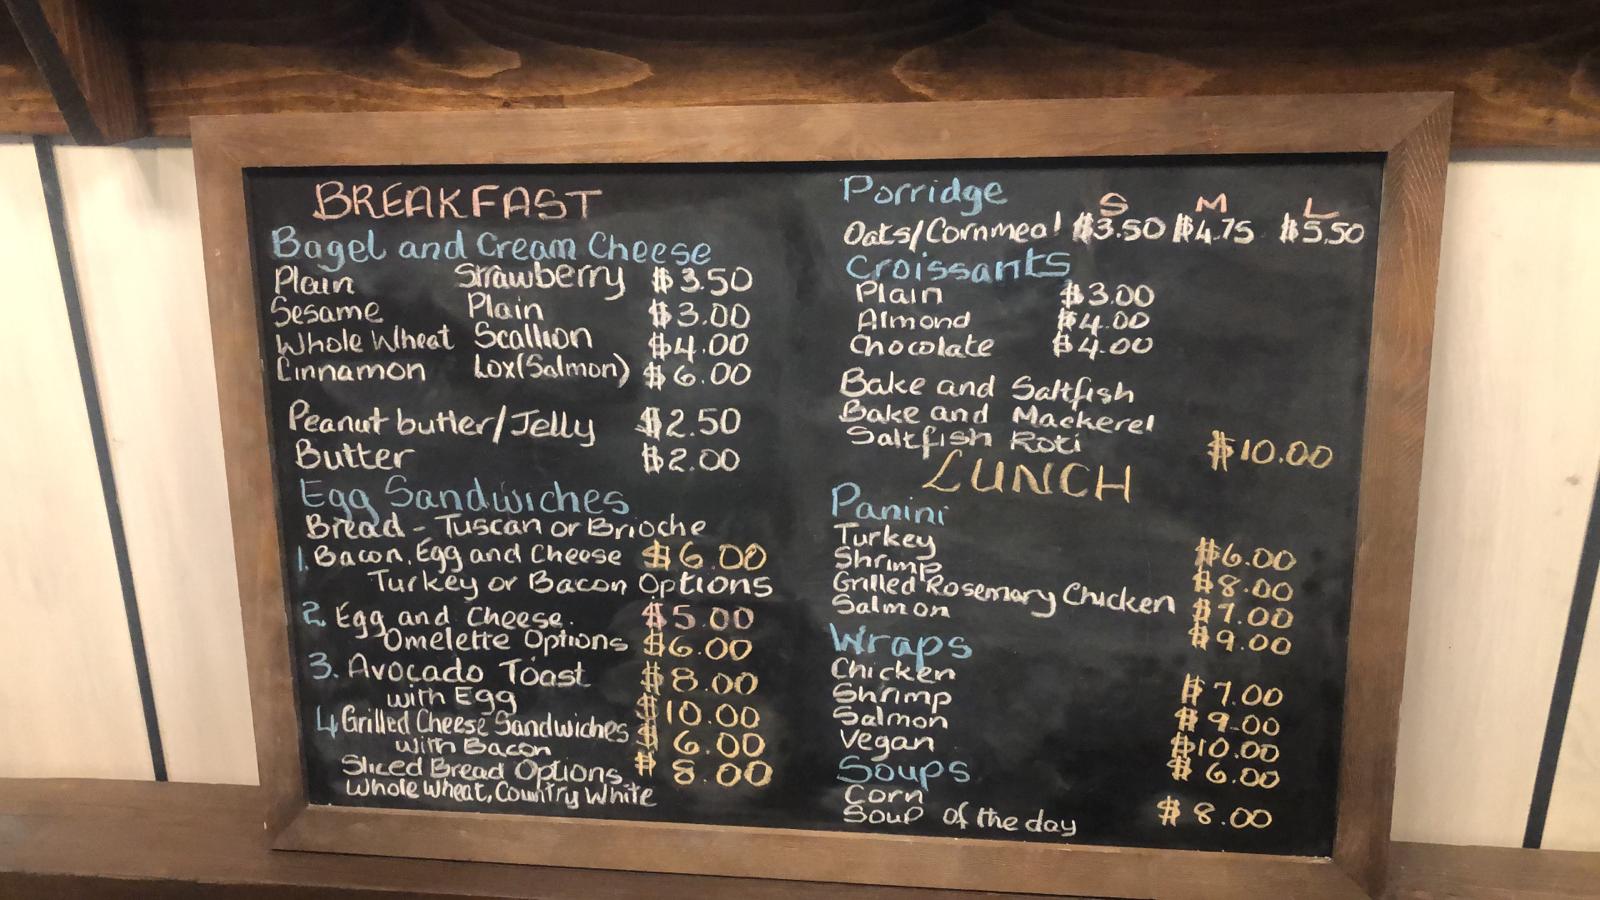 BREAKFAST
Bagel and Cream Cheese
Plain Strawberry $3.50
Sesame Plain $3.00
Whole Wheat Scallion $4.00
Cinnamon Lox(Salmon) $6.00
Peanut butler/Jelly $2.50
Butter $2.00
Egg Sandwiches
Bread - Tuscan or Brioche
1. Bacon, Egg and Cheese $6.00
Turkey or Bacon Options
2. Egg and Cheese. $5.00
Omelette Options $6.00
3. Avocado Toast $8.00
with Egg $10.00
4 Grilled Cheese Sandwiches $6.00
with Bacon $8.00
Sliced Bread Options,
Whole Wheat, Country White
Porridge S M L
Oats/Cornmeal $3.50 $4.75 $5.50
Croissants
Plain $3.00
Almond $4.00
Chocolate $4.00
Bake and Saltfish
Bake and Mackerel
Saltfish Roti $10.00
LUNCH
Panini
Turkey $6.00
Shrimp $8.00
Grilled Rosemary Chicken $7.00
Salmon $9.00
Wraps
Chicken $7.00
Shrimp $9.00
Salmon $10.00
Vegan $6.00
Soups
Corn
Soup of the day $8.00